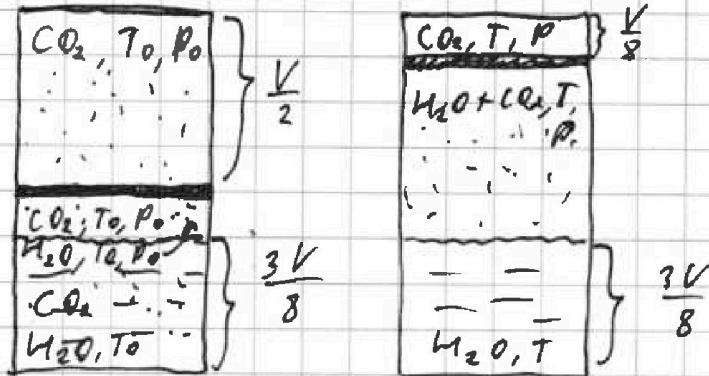 CO₂, T₀, P₀
V/2
CO₂, T₀, P₀
H₂O, T₀, P₀
CO₂
H₂O, T₀
3V/8
CO₂, T, P
V/8
H₂O + CO₂, T,
P
H₂O, T
3V/8